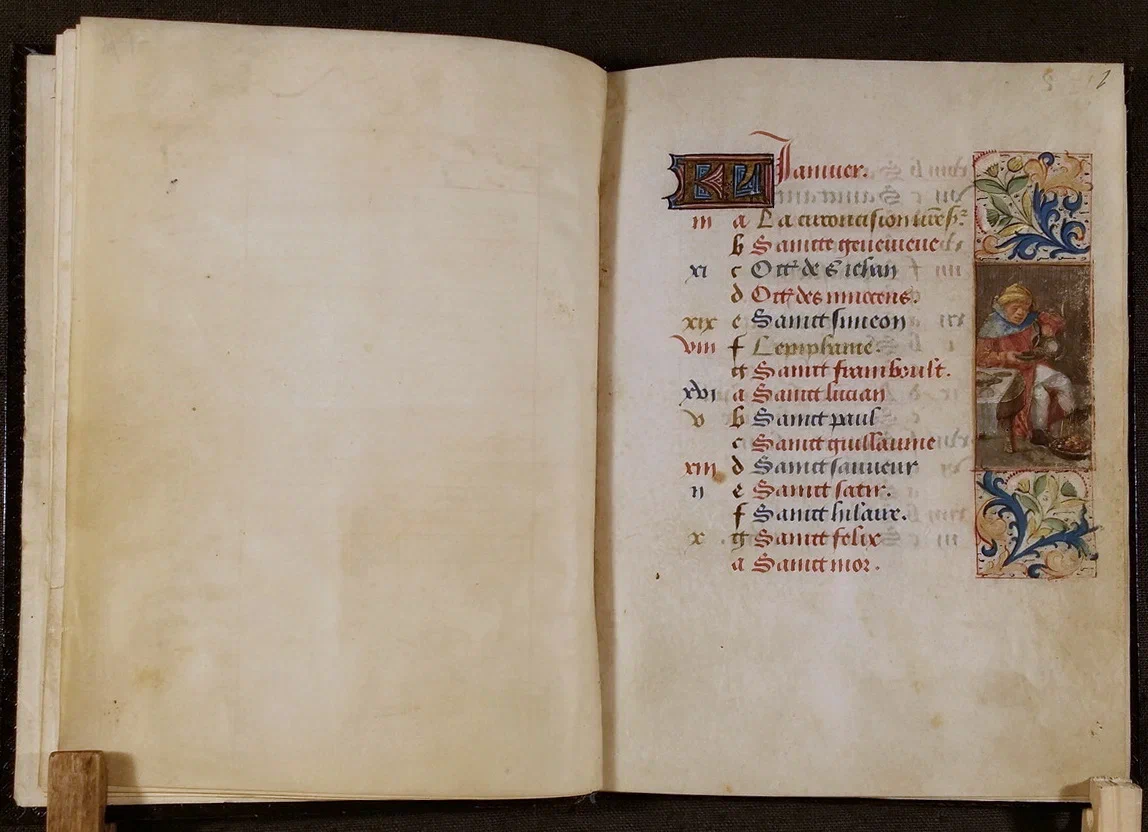 2
KL Januier.
iii a La circoncision nr̄es̄r
b Saincte geneuieue
xi c Oct̄ de s iehan
d Oct̄ des innocens.
xix e Sainct simeon
viii f Lepiphanie.
g Sainct framboult.
xvi a Sainct lucian
v b Sainct paul
c Sainct guillaume
xiii d Sainct sauueur
ii e Sainct satir.
f Sainct hilaire.
x g Sainct felix
a Sainct mor.